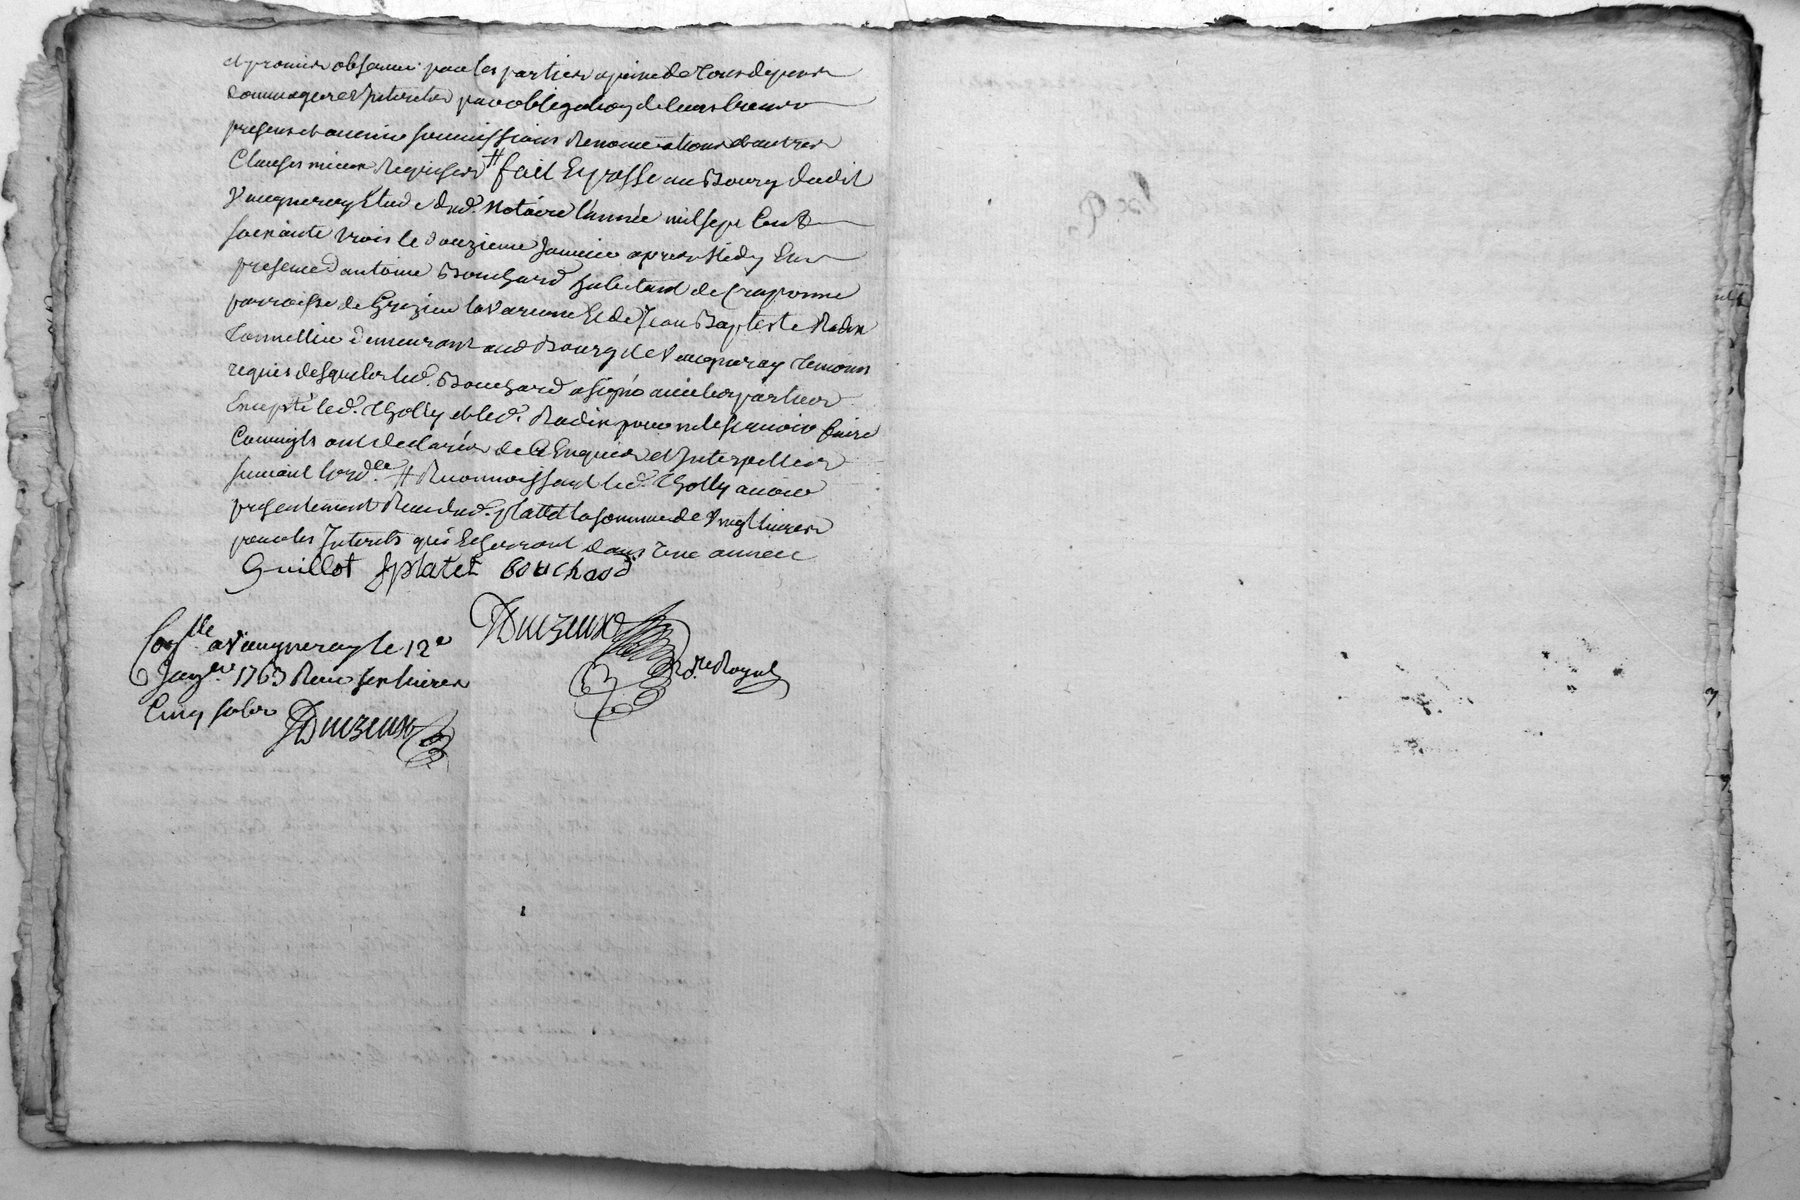 et promis observer par les parties a peine de tous depens
dommages et Interets par obligation de leurs biens
presens et avenir soumissions Renonciations et autres
Clauses mieux Requises # fait Et passé au Bourg dudit
Vaugneray Etude dud. Notaire l'année mil sept Cent
soixante trois le douzieme Janvier apres Midy En
presence d'antoine Bouchard habitant de Craponne
parroisse de Grezieu la Varenne Et de Jean Baptiste Radix
Tonnellier demeurant aud Bourg de Vaugneray temoins
requis desquels led. Bouchard a signé avec les parties
Excepté led. Tholly et led. Radix pour ne le sçavoir faire
Comm'ils ont declarés de ce Enquis et Interpellés
suivant l'ord.ce # Reconnoissant led. Tholly avoir
presentement Reçu dud. platet la somme de Vingt livres
pour les Interets qui Echerront dans une année
Guillot Jplatet bouchard
Duzeux
No.re Royal
Con.llé a Vaugneray le 12e
Janv.er 1763 Reçu six livres
Cinq sols Duzeux